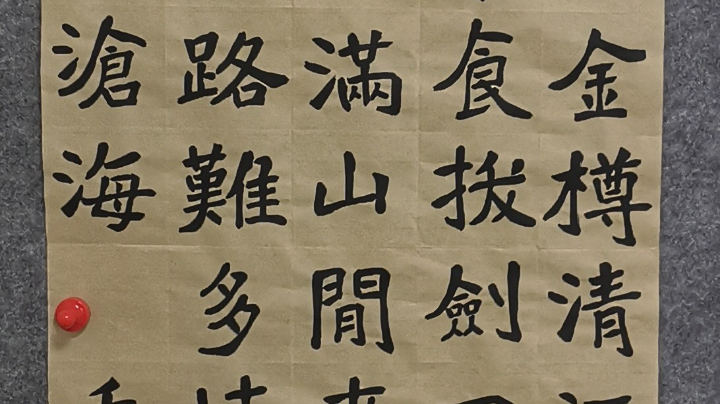 金樽清
食拔劍
滿山閒
路難多
滄海